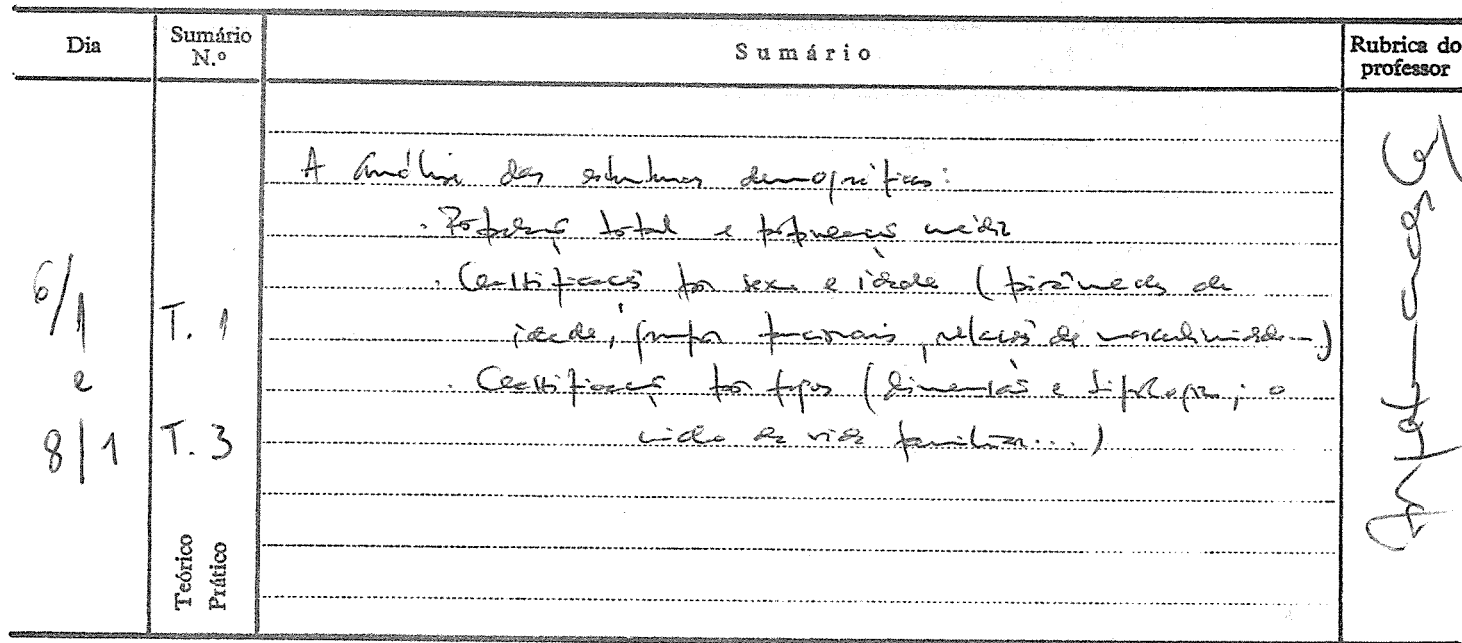 Dia
Sumário N.º
Sumário
Rubrica do professor
6/1
e
8/1
T. 1
T. 3
Teórico
Prático
A análise das estruturas demográficas:
. População total e população média
. Classificação por sexo e idade (pirâmides de
idade, grupos funcionais, relação de masculinidade...)
. Classificação por fogos (dimensão e tipologia; o
ciclo de vida familiar...)